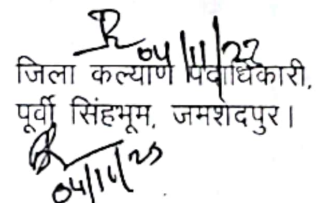 04/11/22
जिला कल्याण पदाधिकारी,
पूर्वी सिंहभूम, जमशेदपुर।
04/11/22